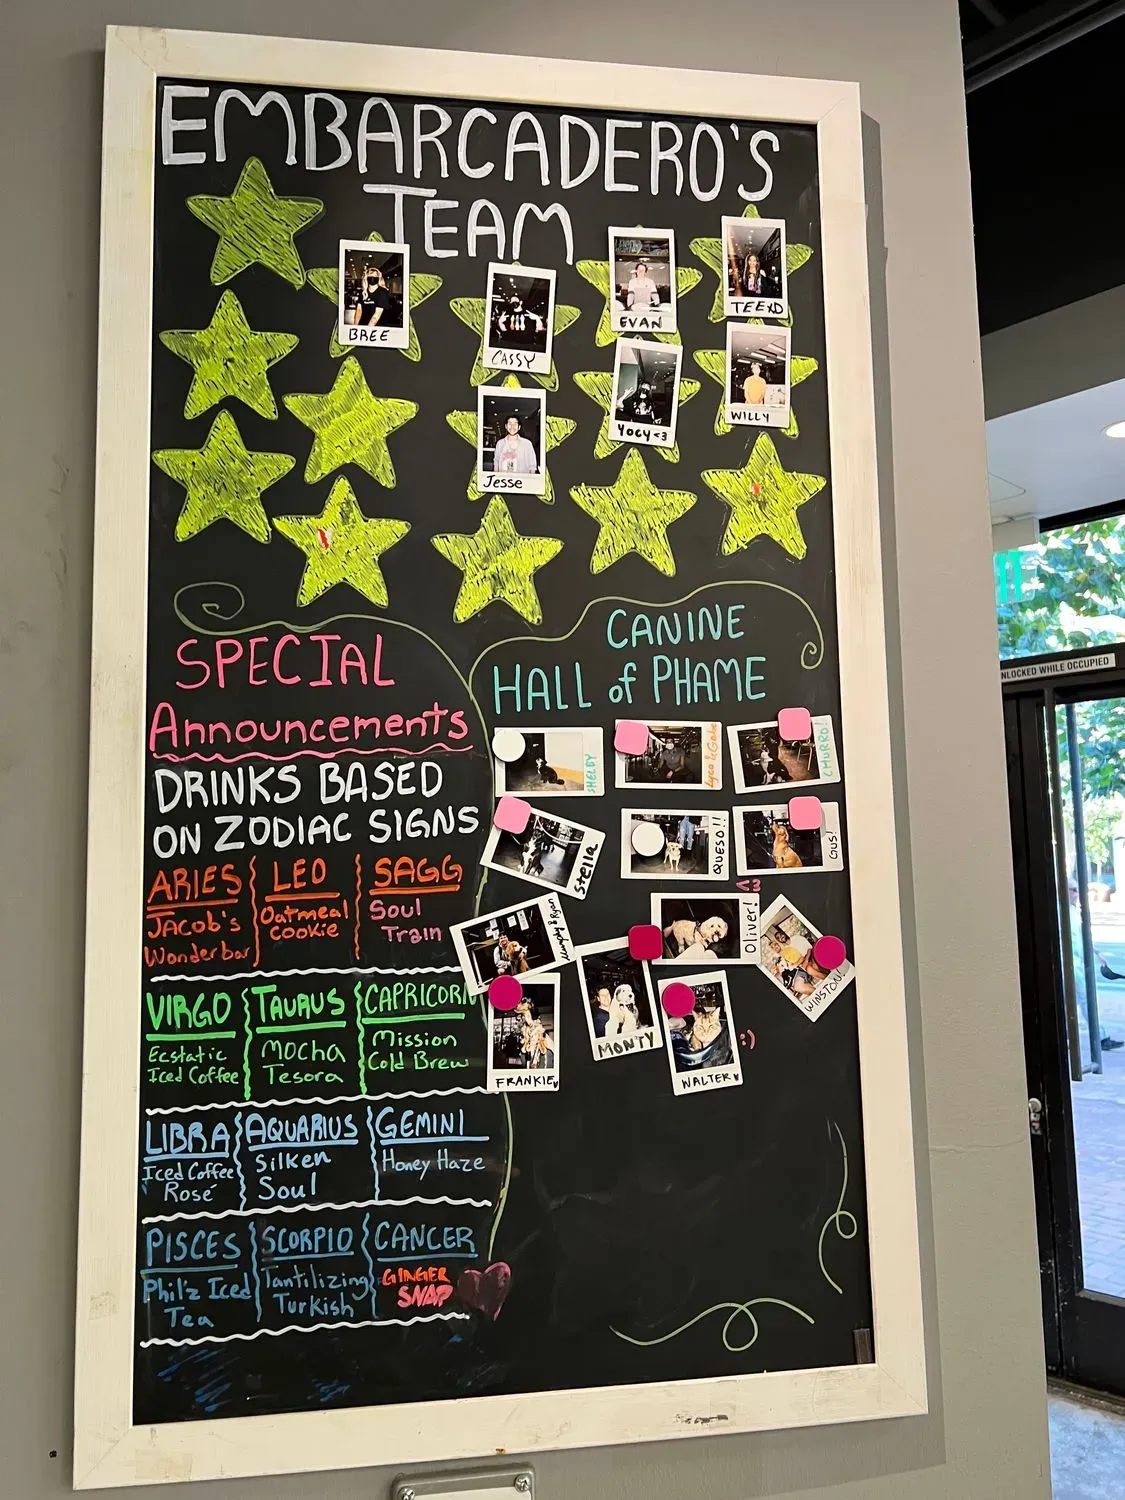 EMBARCADERO'S
TEAM
BREE
CASSY
EVAN
TEEXD
Jesse
YOCY<3
WILLY
SPECIAL
Announcements
DRINKS BASED
ON ZODIAC SIGNS
ARIES
Jacob's
Wonderbar
LEO
Oatmeal
cookie
SAGG
Soul
Train
VIRGO
Ecstatic
Iced Coffee
TAURUS
Mocha
Tesora
CAPRICORN
Mission
Cold Brew
LIBRA
Iced Coffee
Rosé
AQUARIUS
Silken
Soul
GEMINI
Honey Haze
PISCES
Phil'z Iced
Tea
SCORPIO
Tantilizing
Turkish
CANCER
GINGER
SNAP
CANINE
HALL of PHAME
SHELBY
& Gabe
CHURRO!
Stella
QUESO!!
GUS!
Murphy & Ryan
Oliver!
<3
WINSTON!
FRANKIE
MONTY
WALTER
:)
UNLOCKED WHILE OCCUPIED